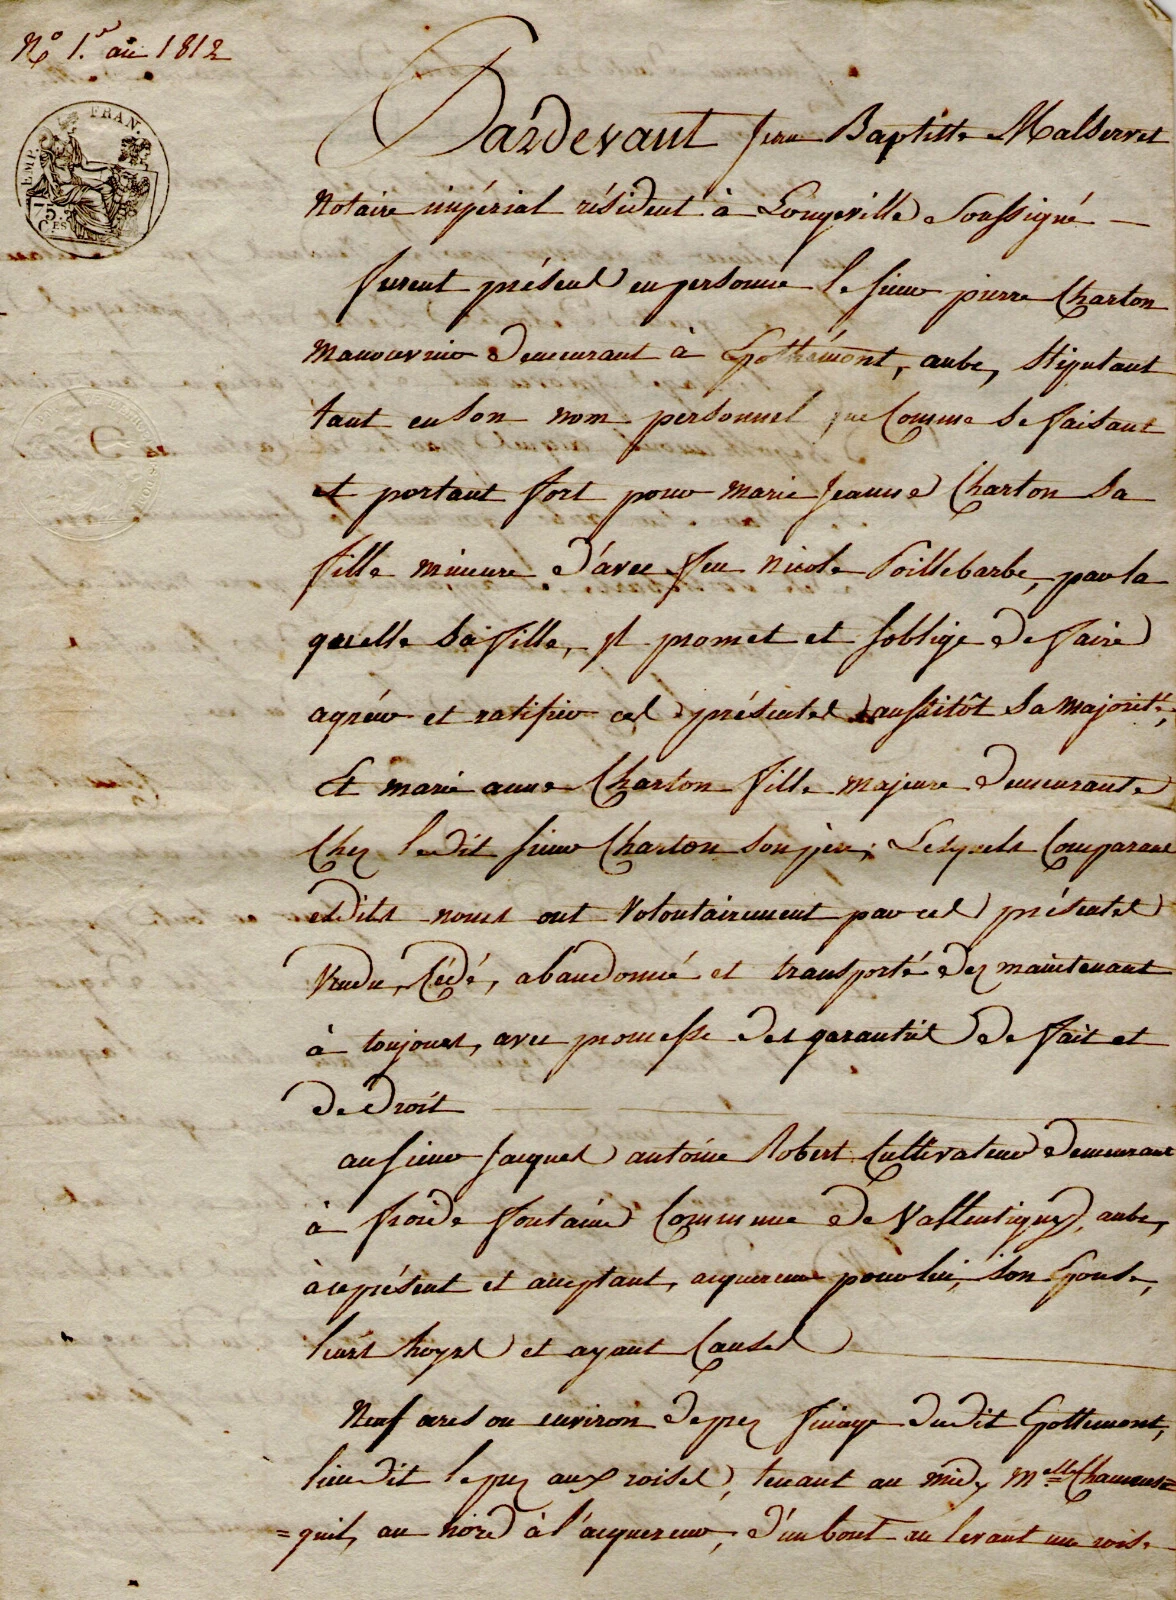 N.º 1.er an 1812
EMP. FRAN.
75
CES
Pardevant Jean Baptiste Maldervet
Notaire impérial résident à Longeville Soussigné
furent présent en personne le sieur pierre Charton
manouvrier demeurant à Epothémont, aube, stipulant
tant en son nom personnel que Comme se faisant
et portant fort pour marie jeanne Charton sa
fille mineure d'avec feu nicole Poillebarbe, par la
quelle sa fille, il promet et soblige de faire
agréer et ratifier ces présentes aussitôt sa majorité,
Et marie anne Charton fille majeure demeurante
Chez ledit sieur Charton son père; Lesquels Comparant
esdits noms ont volontairement par ces présentes
vendu, Cédé, abandonné et transporté dez maintenant
à toujours, avec promesse des garanties de fait et
de droit
au sieur Jacques antoine Robert Cultivateur demeurant
à froide fontaine Commune de Vallentigny, aube,
à ce présent et acceptant, acquereur pour lui, son Epouse,
leurs hoyrs et ayant Causes
Neuf ares ou environ de prez finage dudit Epottemont,
lieudit le prez aux roises, tenant au midy Melle Chaumon=
=quil, au nord à l'acquereur, d'un bout au levant une roise